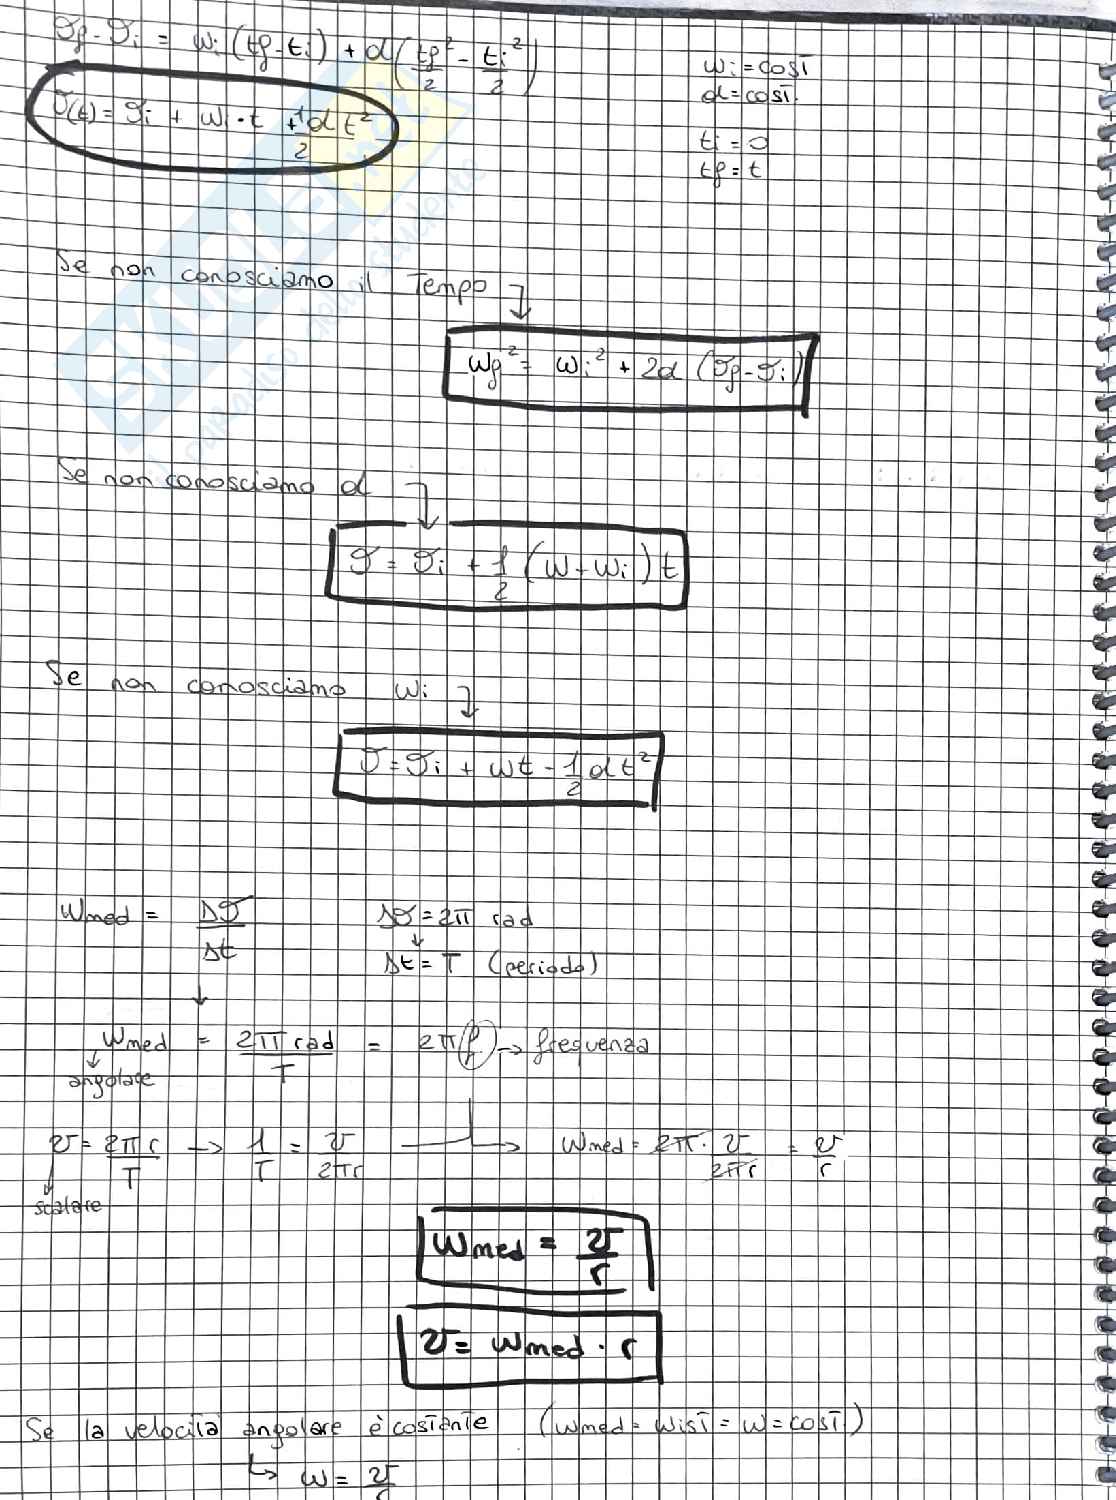 ϑf - ϑi = ωi (tf - ti) + α (tf²/2 - ti²/2)
ωi = cost
α = cost.
ϑ(t) = ϑi + ωi · t + 1/2 α t²
ti = 0
tf = t
SKUOLA.net
il paradiso dello studente
Se non conosciamo il Tempo
ωf² = ωi² + 2α (ϑf - ϑi)
Se non conosciamo α
ϑ = ϑi + 1/2 (ω + ωi) t
Se non conosciamo ωi
ϑ = ϑi + ωt - 1/2 αt²
ωmed = Δϑ/Δt
Δϑ = 2π rad
↓
Δt = T (periodo)
↓
ωmed = 2π rad/T = 2π f → frequenza
angolare
v = 2πr/T → 1/T = v/2πr → ωmed = 2π · v/2πr = v/r
scalare
ωmed = v/r
v = ωmed · r
Se la velocità angolare è costante (ωmed = ωist = ω = cost.)
↳ ω = v/r